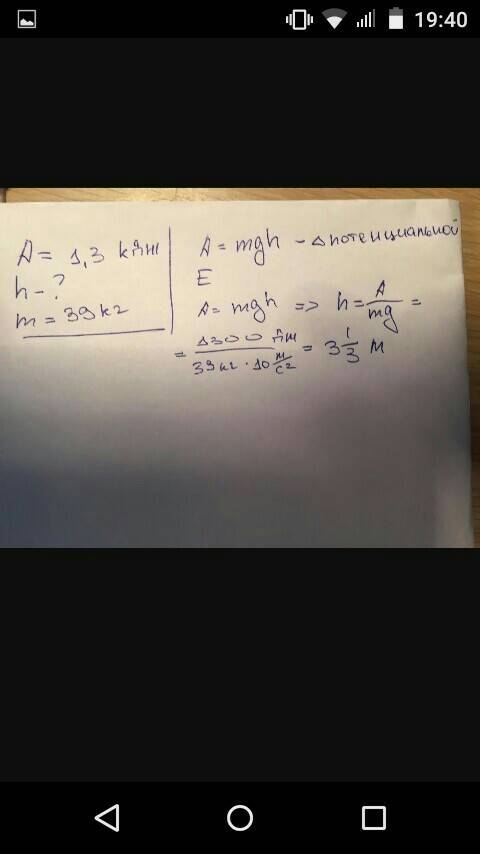 19:40
A = 1,3 кДж
h - ?
m = 39 кг
A = mgh - Δ потенциальной
E
A = mgh => h = A/mg =
= 1300 Дж / 39 кг · 10 м/с² = 3 1/3 м